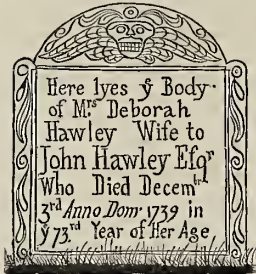 Here lyes yͤ Body
of Mʳˢ Deborah
Hawley Wife to
John Hawley Eſqʳ
Who Died Decemᵇʳ
3ʳᵈ Anno Dom. 1739 in
yͤ 73.ʳᵈ Year of Her Age